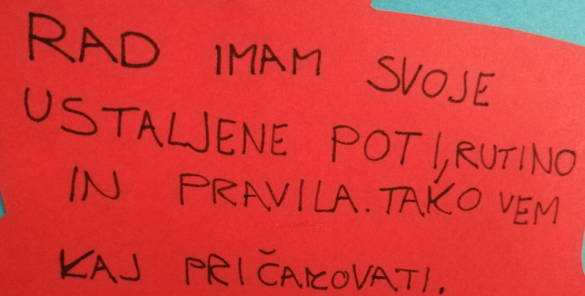 RAD IMAM SVOJE
USTALJENE POTI, RUTINO
IN PRAVILA. TAKO VEM
KAJ PRIČAKOVATI.